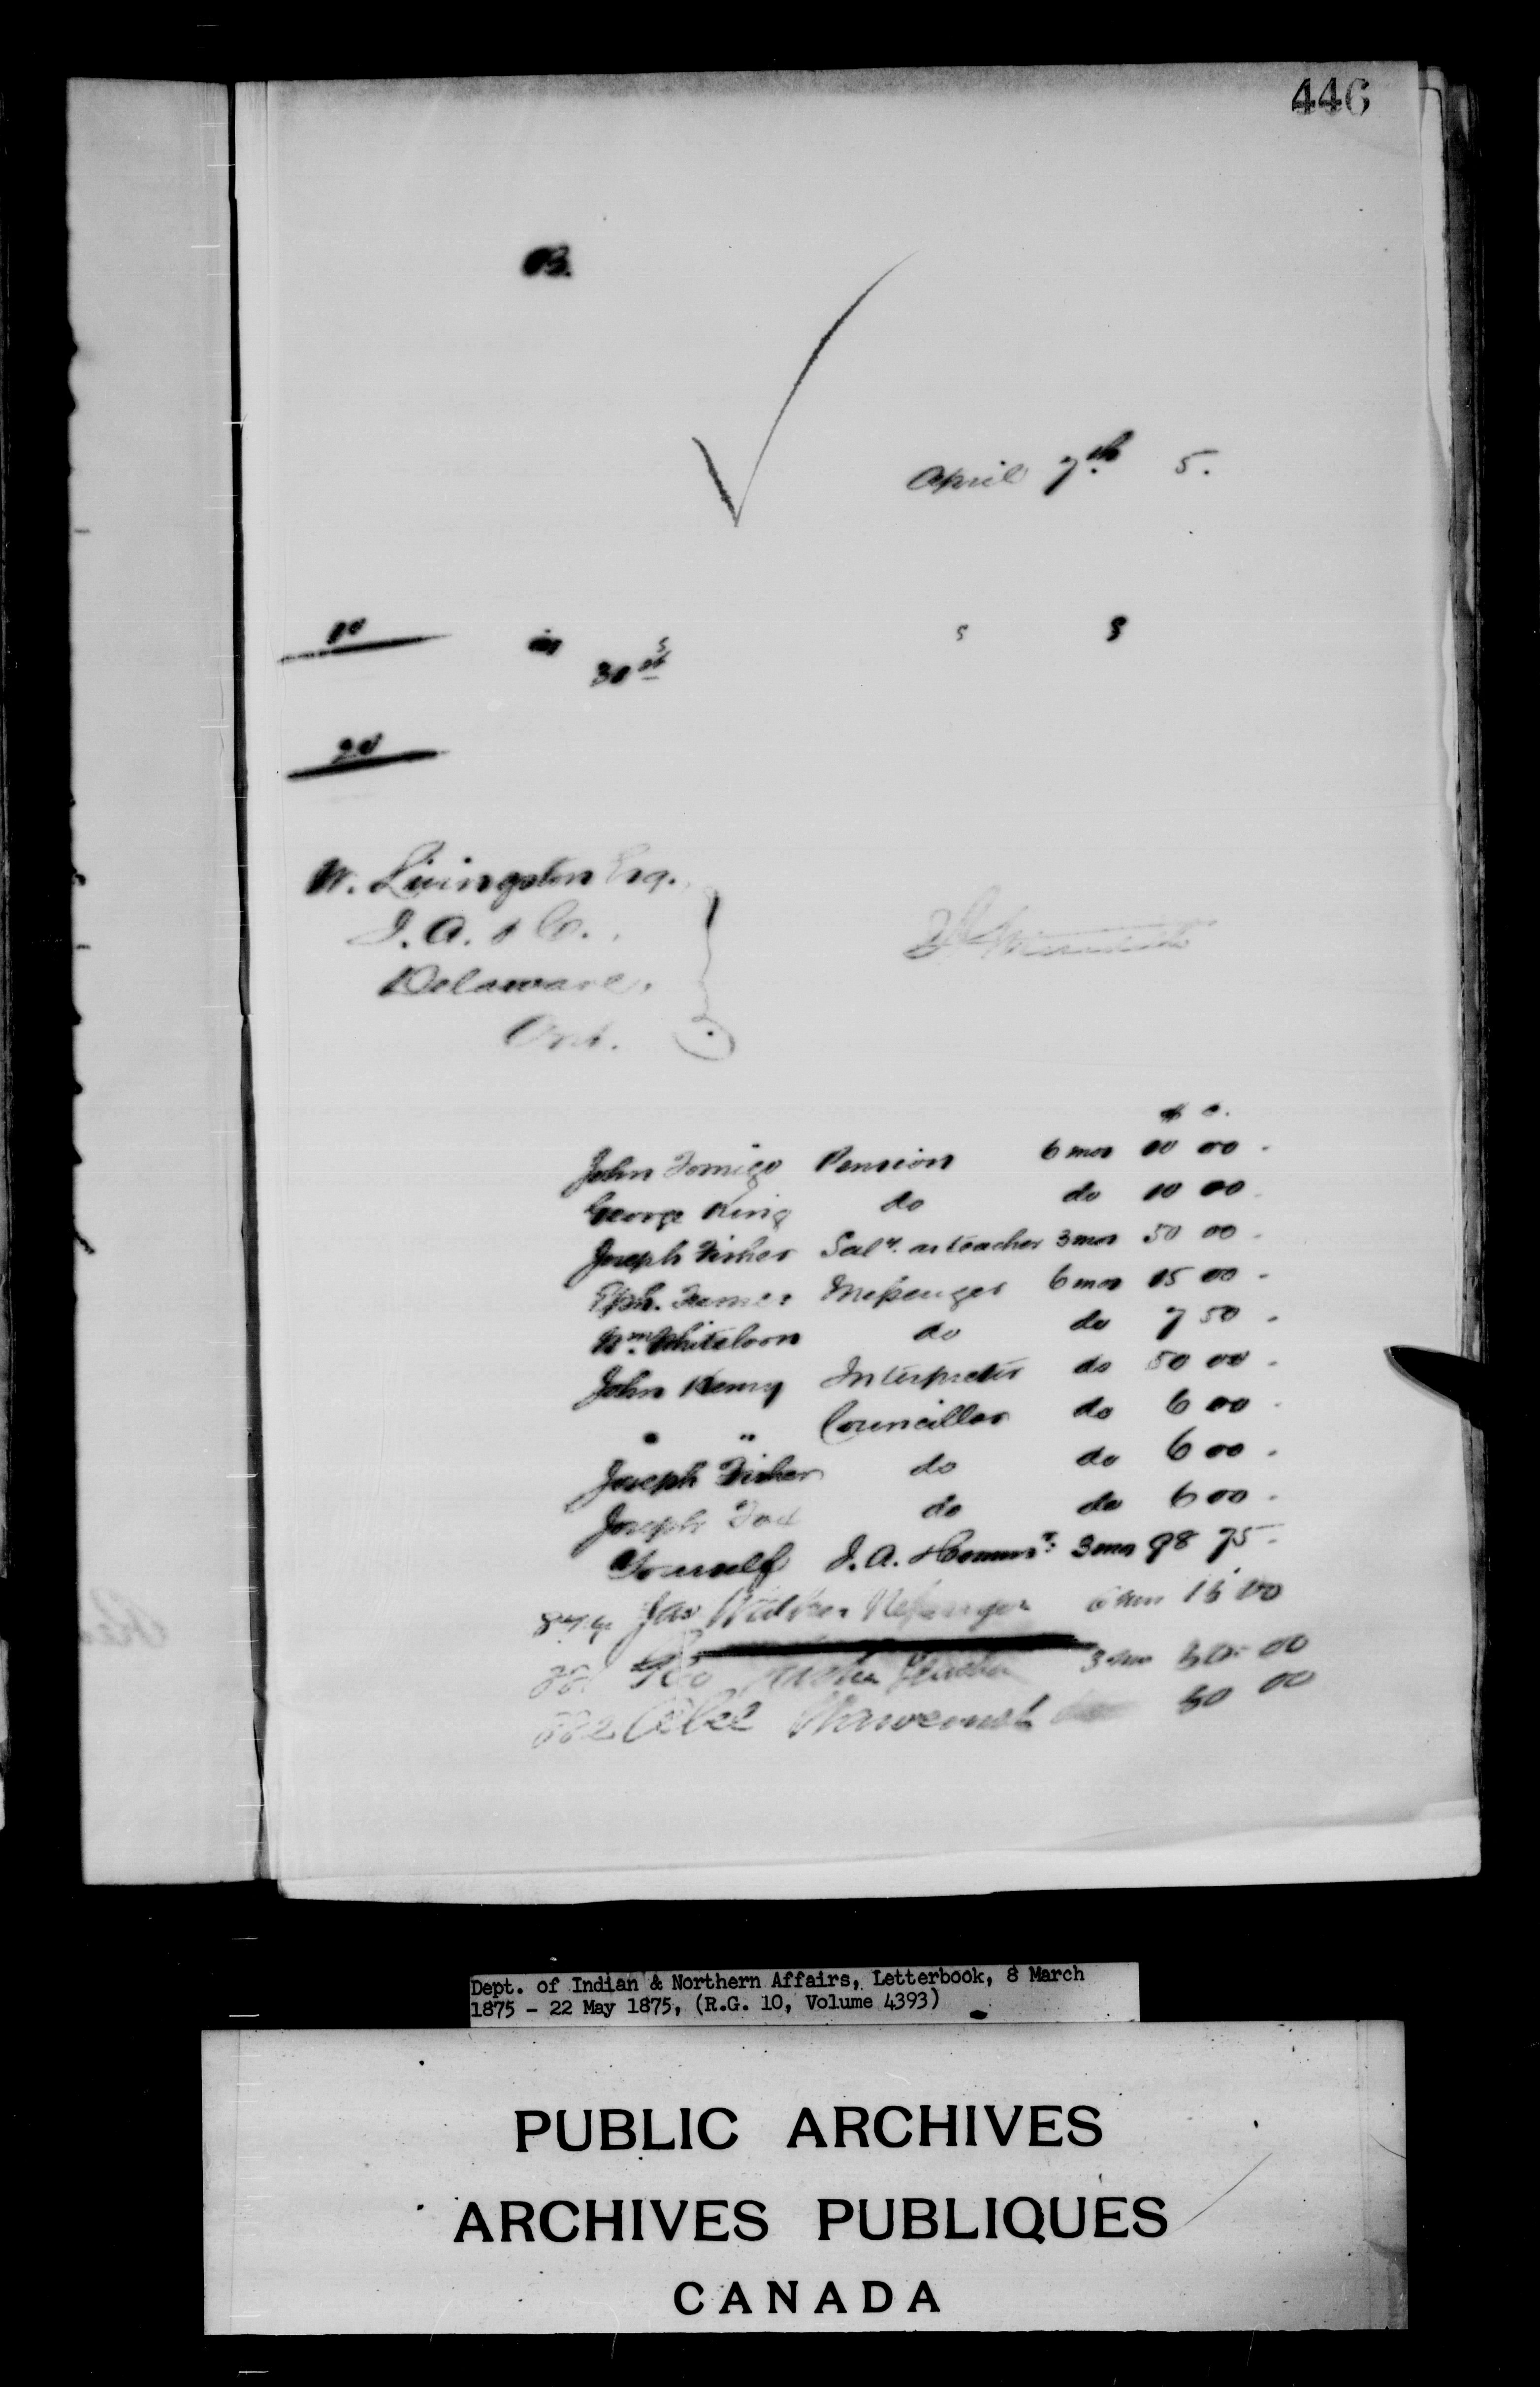 446
B.
April 7th 5.
10
in 30 s
20
W. Livingston Esq.
I. A. & C.
Delaware,
Ont.
$ c.
John Tomigo Pension 6 mos 10 00
George King do do 10 00
Joseph Fisher Saly. as teacher 3 mos 50 00
Messenger 6 mos 15 00
Wm. Whiteloon do do 7 50
John Henry Interpreter do 50 00
" " Councillor do 6 00
Joseph Fisher do do 6 00
Joseph Fox do do 6 00
Yourself I. A. & Commr. 3 mos 98 75
Jas Messenger 6 mos 15 00
3 mos 50 00
882 Abel 50 00
Dept. of Indian & Northern Affairs, Letterbook, 8 March
1875 - 22 May 1875, (R.G. 10, Volume 4393)
PUBLIC ARCHIVES
ARCHIVES PUBLIQUES
CANADA